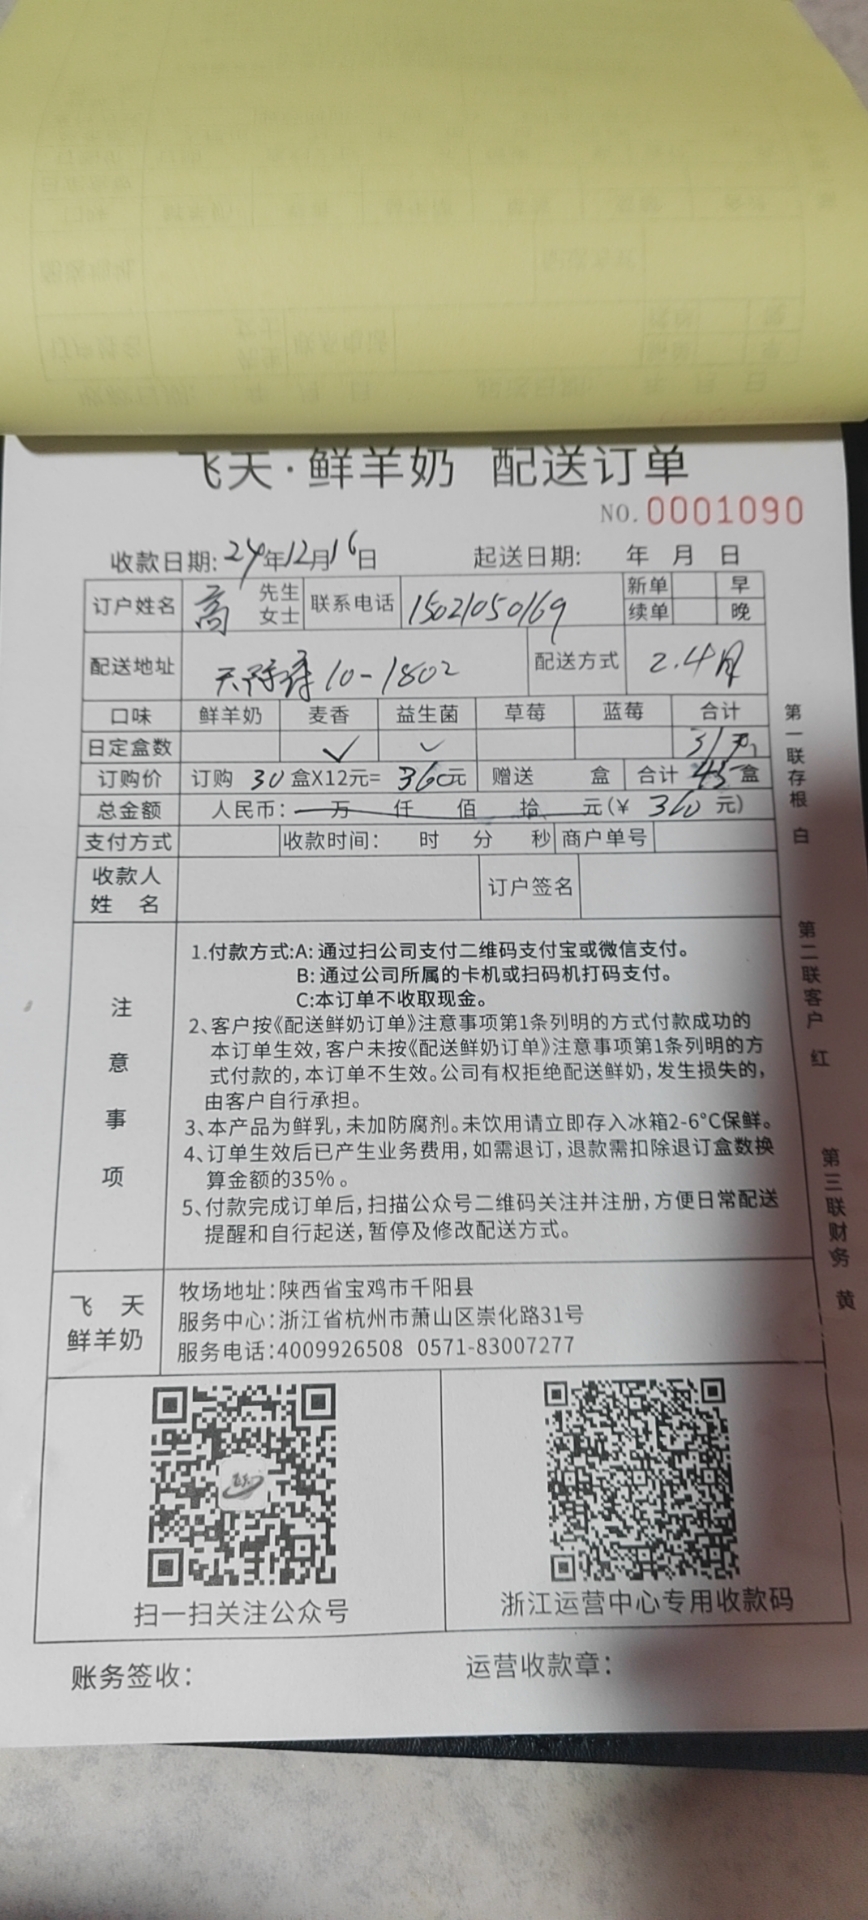 飞天·鲜羊奶 配送订单
NO.0001090
收款日期:24年12月16日 起送日期: 年 月 日
订户姓名 高 先生 女士 联系电话 15021050169 新单 早
续单 晚
配送地址 10-1802 配送方式 2.4周
口味 鲜羊奶 麦香 益生菌 草莓 蓝莓 合计
日定盒数 ✓ ✓
订购价 订购 30 盒X12元= 360元 赠送 盒 合计 45 盒
总金额 人民币: 万 仟 佰 拾 元(¥ 360 元)
支付方式 收款时间: 时 分 秒 商户单号
收款人 姓 名 订户签名
注意事项
1.付款方式:A:通过扫公司支付二维码支付宝或微信支付。
B:通过公司所属的卡机或扫码机打码支付。
C:本订单不收取现金。
2、客户按《配送鲜奶订单》注意事项第1条列明的方式付款成功的
本订单生效,客户未按《配送鲜奶订单》注意事项第1条列明的方
式付款的,本订单不生效。公司有权拒绝配送鲜奶,发生损失的,
由客户自行承担。
3、本产品为鲜乳,未加防腐剂。未饮用请立即存入冰箱2-6°C保鲜。
4、订单生效后已产生业务费用,如需退订,退款需扣除退订盒数换
算金额的35%。
5、付款完成订单后,扫描公众号二维码关注并注册,方便日常配送
提醒和自行起送,暂停及修改配送方式。
飞天
鲜羊奶
牧场地址:陕西省宝鸡市千阳县
服务中心:浙江省杭州市萧山区崇化路31号
服务电话:4009926508 0571-83007277
扫一扫关注公众号 浙江运营中心专用收款码
账务签收: 运营收款章:
第一联存根 白
第二联客户 红
第三联财务 黄